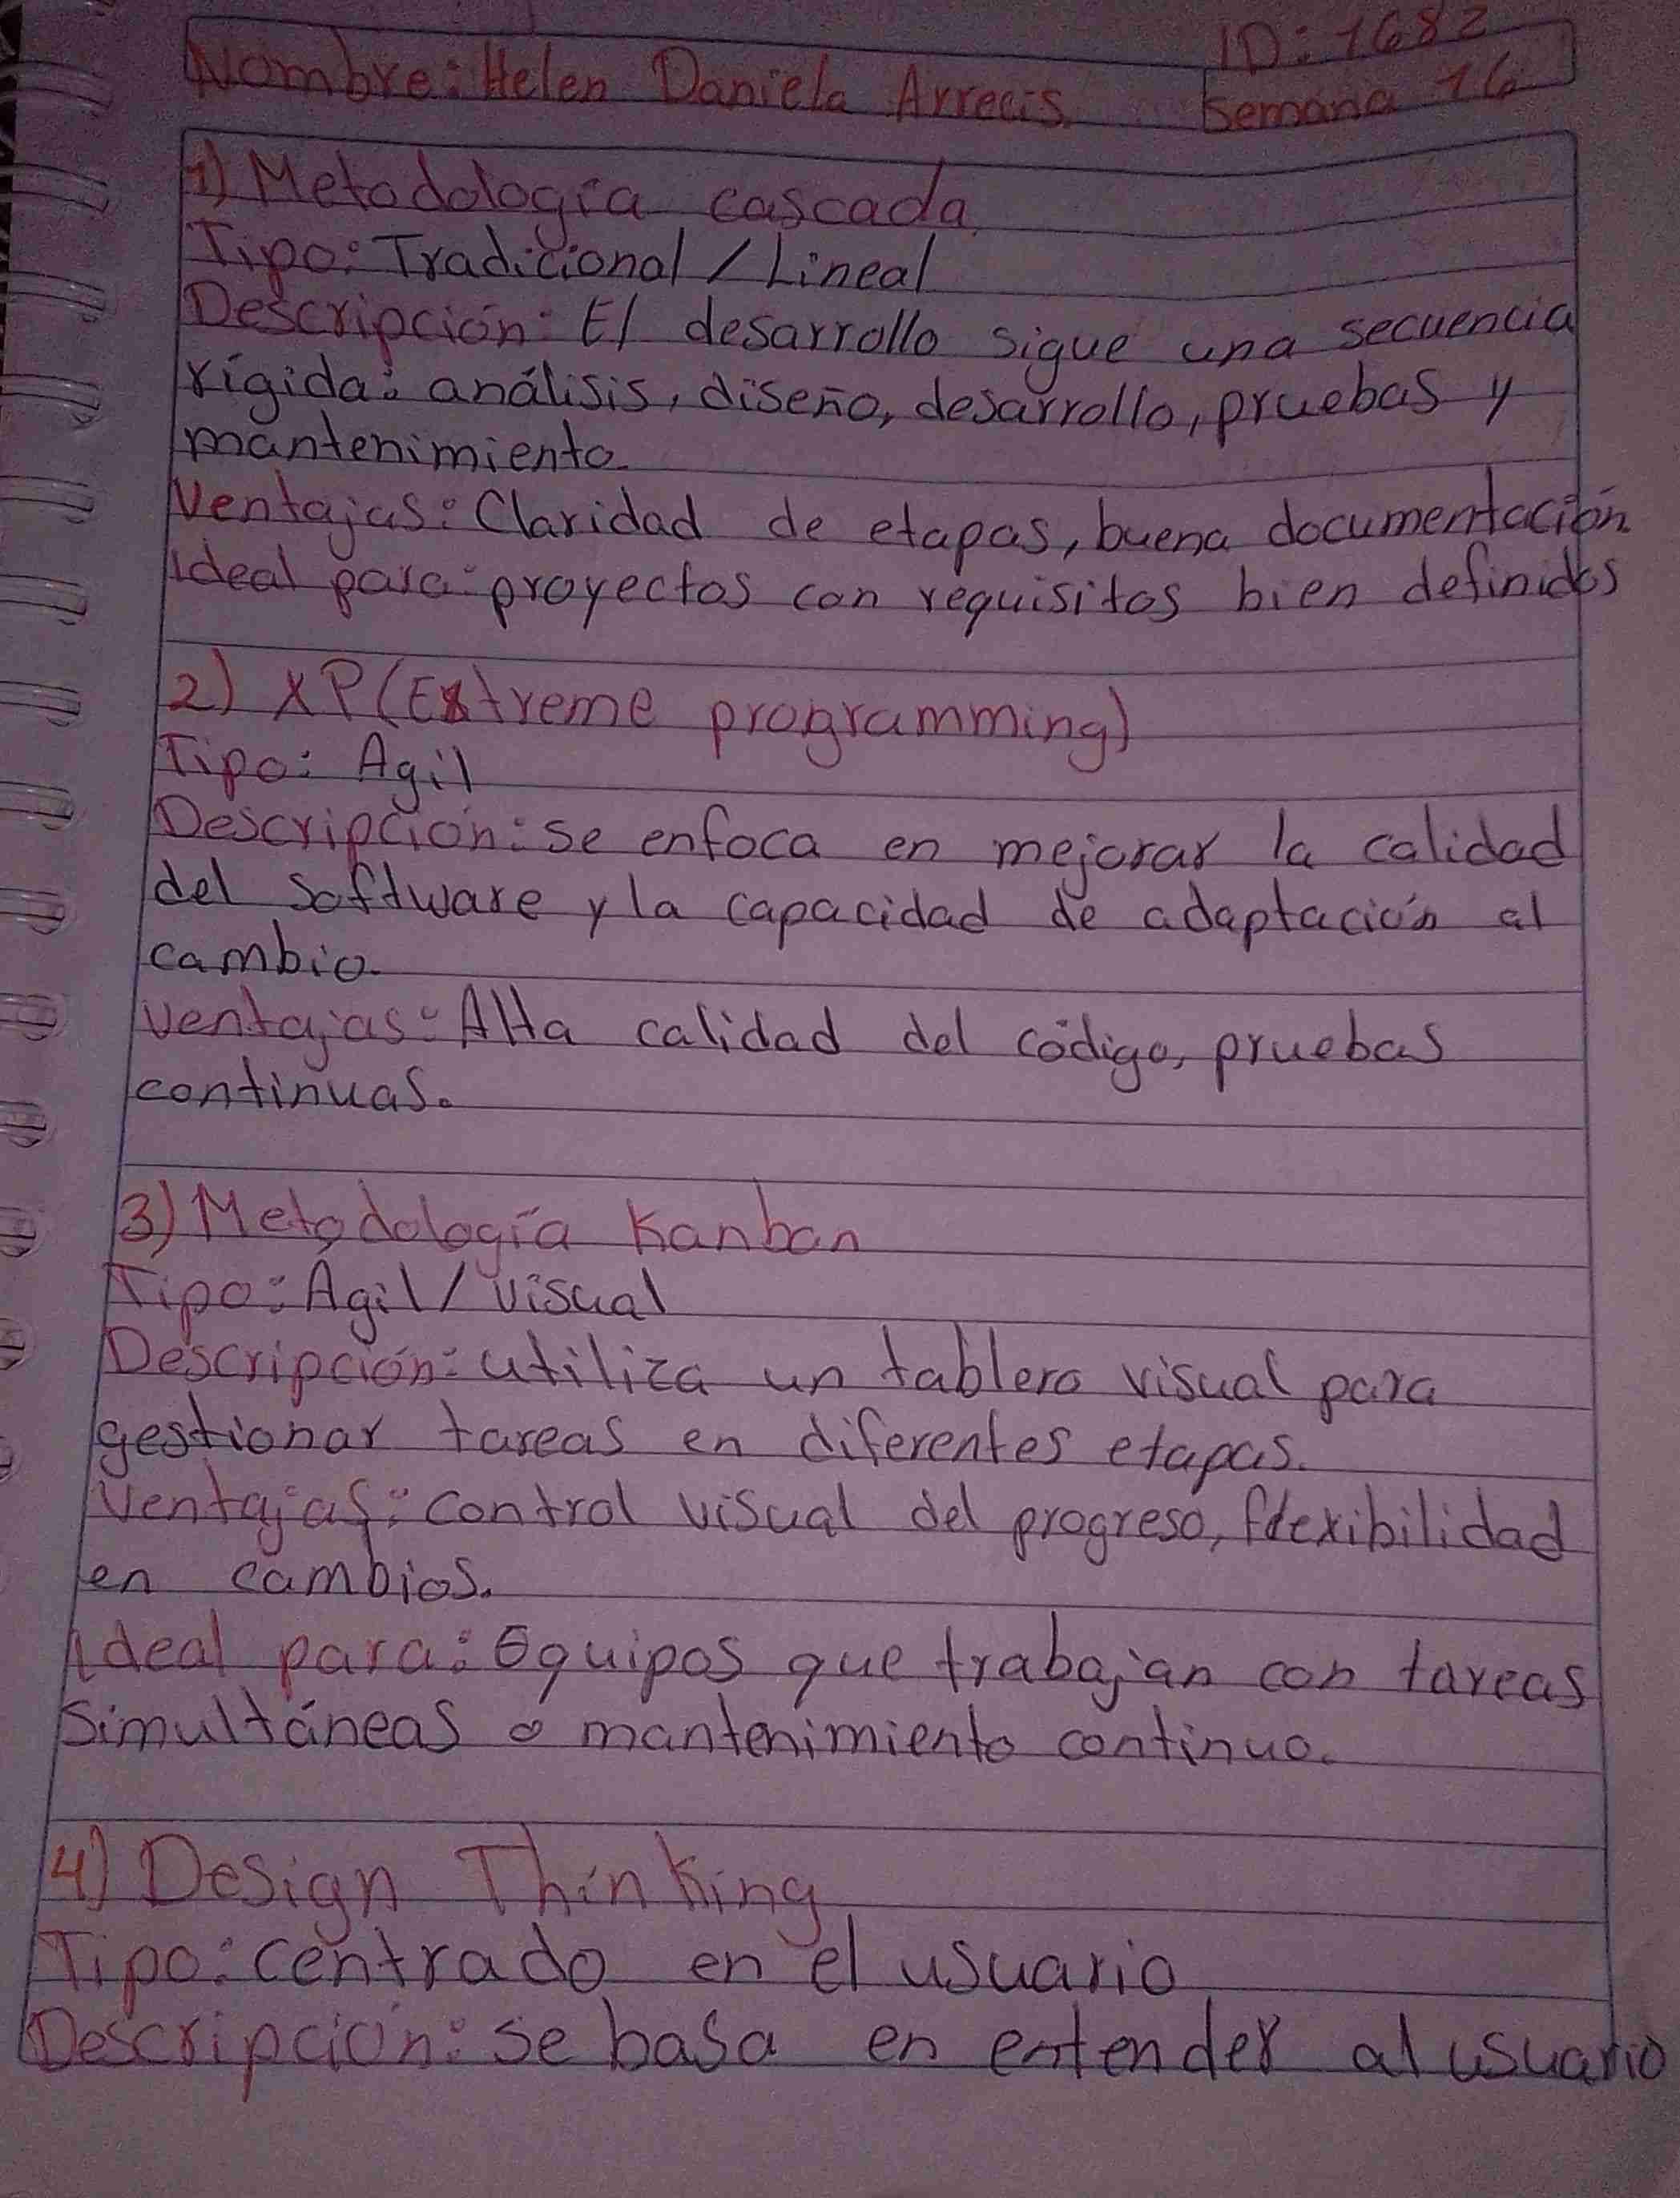 ID: 1682
Nombre: Helen Daniela Arrecis.
Semana 16
1) Metodología cascada
Tipo: Tradicional / Lineal
Descripción: El desarrollo sigue una secuencia
rígida: análisis, diseño, desarrollo, pruebas y
mantenimiento.
Ventajas: Claridad de etapas, buena documentación
Ideal para: proyectos con requisitos bien definidos
2) XP (Extreme programming)
Tipo: Agil
Descripción: se enfoca en mejorar la calidad
del software y la capacidad de adaptación al
cambio.
Ventajas: Alta calidad del código, pruebas
continuas.
3) Metodología Kanban
Tipo: Agil / visual
Descripción: utiliza un tablero visual para
gestionar tareas en diferentes etapas.
Ventajas: control visual del progreso, flexibilidad
en cambios.
Ideal para: Equipos que trabajan con tareas
simultáneas o mantenimiento continuo.
4) Design Thinking
Tipo: centrado en el usuario
Descripción: se basa en entender al usuario